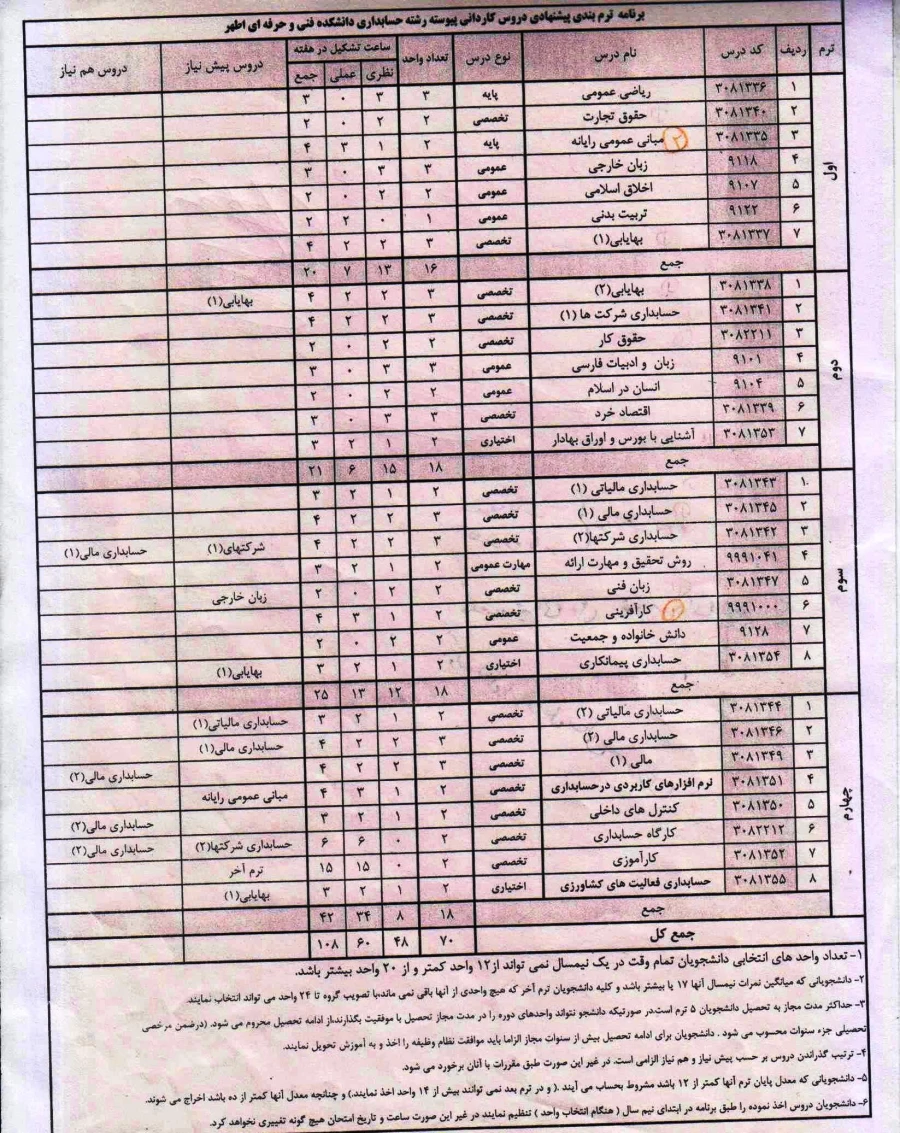 برنامه ترم بندی پیشنهادی دروس کاردانی پیوسته رشته حسابداری دانشکده فنی و حرفه ای اطهر
ترم ردیف کد درس نام درس نوع درس تعداد واحد ساعت تشکیل در هفته دروس پیش نیاز دروس هم نیاز
نظری عملی جمع
اول
۱ ۳۰۸۱۳۳۶ ریاضی عمومی پایه ۳ ۳ ۰ ۳
۲ ۳۰۸۱۳۴۰ حقوق تجارت تخصصی ۲ ۲ ۰ ۲
۳ ۳۰۸۱۳۳۵ مبانی عمومی رایانه پایه ۲ ۱ ۳ ۴
۴ ۹۱۱۸ زبان خارجی عمومی ۳ ۳ ۰ ۳
۵ ۹۱۰۷ اخلاق اسلامی عمومی ۲ ۲ ۰ ۲
۶ ۹۱۲۲ تربیت بدنی عمومی ۱ ۰ ۲ ۲
۷ ۳۰۸۱۳۳۷ بهایابی(۱) تخصصی ۳ ۲ ۲ ۴
جمع ۱۶ ۱۳ ۷ ۲۰
دوم
۱ ۳۰۸۱۳۳۸ بهایابی(۲) تخصصی ۳ ۲ ۲ ۴ بهایابی(۱)
۲ ۳۰۸۱۳۴۱ حسابداری شرکت ها (۱) تخصصی ۳ ۲ ۲ ۴
۳ ۳۰۸۲۲۱۱ حقوق کار تخصصی ۲ ۲ ۰ ۲
۴ ۹۱۰۱ زبان و ادبیات فارسی عمومی ۳ ۳ ۰ ۳
۵ ۹۱۰۴ انسان در اسلام عمومی ۲ ۲ ۰ ۲
۶ ۳۰۸۱۳۳۹ اقتصاد خرد تخصصی ۳ ۳ ۰ ۳
۷ ۳۰۸۱۳۵۳ آشنایی با بورس و اوراق بهادار اختیاری ۲ ۱ ۲ ۳
جمع ۱۸ ۱۵ ۶ ۲۱
سوم
۱ ۳۰۸۱۳۴۳ حسابداری مالیاتی (۱) تخصصی ۲ ۱ ۲ ۳
۲ ۳۰۸۱۳۴۵ حسابداری مالی (۱) تخصصی ۳ ۲ ۲ ۴
۳ ۳۰۸۱۳۴۲ حسابداری شرکتها(۲) تخصصی ۳ ۲ ۲ ۴ شرکتهای(۱) حسابداری مالی(۱)
۴ ۹۹۹۱۰۴۱ روش تحقیق و مهارت ارائه مهارت عمومی ۲ ۱ ۲ ۳
۵ ۳۰۸۱۳۴۷ زبان فنی تخصصی ۲ ۲ ۰ ۲ زبان خارجی
۶ ۹۹۹۱۰۰۰ کارآفرینی تخصصی ۲ ۱ ۳ ۴
۷ ۹۱۲۸ دانش خانواده و جمعیت عمومی ۲ ۲ ۰ ۲
۸ ۳۰۸۱۳۵۴ حسابداری پیمانکاری اختیاری ۲ ۱ ۲ ۳ بهایابی(۱)
جمع ۱۸ ۱۲ ۱۳ ۲۵
چهارم
۱ ۳۰۸۱۳۴۴ حسابداری مالیاتی (۲) تخصصی ۲ ۱ ۲ ۳ حسابداری مالیاتی(۱)
۲ ۳۰۸۱۳۴۶ حسابداری مالی (۲) تخصصی ۳ ۲ ۲ ۴ حسابداری مالی(۱)
۳ ۳۰۸۱۳۴۹ مالی (۱) تخصصی ۳ ۲ ۲ ۴ حسابداری مالی(۲)
۴ ۳۰۸۱۳۵۱ نرم افزارهای کاربردی درحسابداری تخصصی ۲ ۱ ۳ ۴ مبانی عمومی رایانه
۵ ۳۰۸۱۳۵۰ کنترل های داخلی تخصصی ۲ ۱ ۲ ۳ حسابداری مالی(۲)
۶ ۳۰۸۲۲۱۲ کارگاه حسابداری تخصصی ۲ ۰ ۶ ۶ حسابداری شرکتها(۲) حسابداری مالی(۲)
۷ ۳۰۸۱۳۵۲ کارآموزی تخصصی ۲ ۰ ۱۵ ۱۵ ترم آخر
۸ ۳۰۸۱۳۵۵ حسابداری فعالیت های کشاورزی اختیاری ۲ ۱ ۲ ۳ بهایابی(۱)
جمع ۱۸ ۸ ۳۴ ۴۲
جمع کل ۷۰ ۴۸ ۶۰ ۱۰۸
۱- تعداد واحد های انتخابی دانشجویان تمام وقت در یک نیمسال نمی تواند از۱۲ واحد کمتر و از ۲۰ واحد بیشتر باشد.
۲- دانشجویانی که میانگین نمرات نیمسال آنها ۱۷ یا بیشتر باشد و کلیه دانشجویان ترم آخر که هیچ واحدی از آنها باقی نمی ماند،با تصویب گروه تا ۲۴ واحد می تواند انتخاب نمایند.
۳- حداکثر مدت مجاز به تحصیل دانشجویان ۵ ترم است.در صورتیکه دانشجو نتواند واحدهای دوره را در مدت مجاز تحصیل با موفقیت بگذارند،از ادامه تحصیل محروم می شود. (درضمن مرخصی
تحصیلی جزء سنوات محسوب می شود . دانشجویان برای ادامه تحصیل بیش از سنوات مجاز الزاما باید موافقت نظام وظیفه را اخذ و به آموزش تحویل نمایند.
۴- ترتیب گذراندن دروس بر حسب پیش نیاز و هم نیاز الزامی است. در غیر این صورت طبق مقررات با آنان برخورد می شود.
۵- دانشجویانی که معدل پایان ترم آنها کمتر از ۱۲ باشد مشروط بحساب می آیند .( و در ترم بعد نمی توانند بیش از ۱۴ واحد اخذ نمایند.) و چنانچه معدل آنها کمتر از ده باشد اخراج می شوند.
۶- دانشجویان دروس اخذ نموده را طبق برنامه در ابتدای نیم سال ( هنگام انتخاب واحد ) تنظیم نمایند در غیر این صورت ساعت و تاریخ امتحان هیچ گونه تغییری نخواهد کرد.